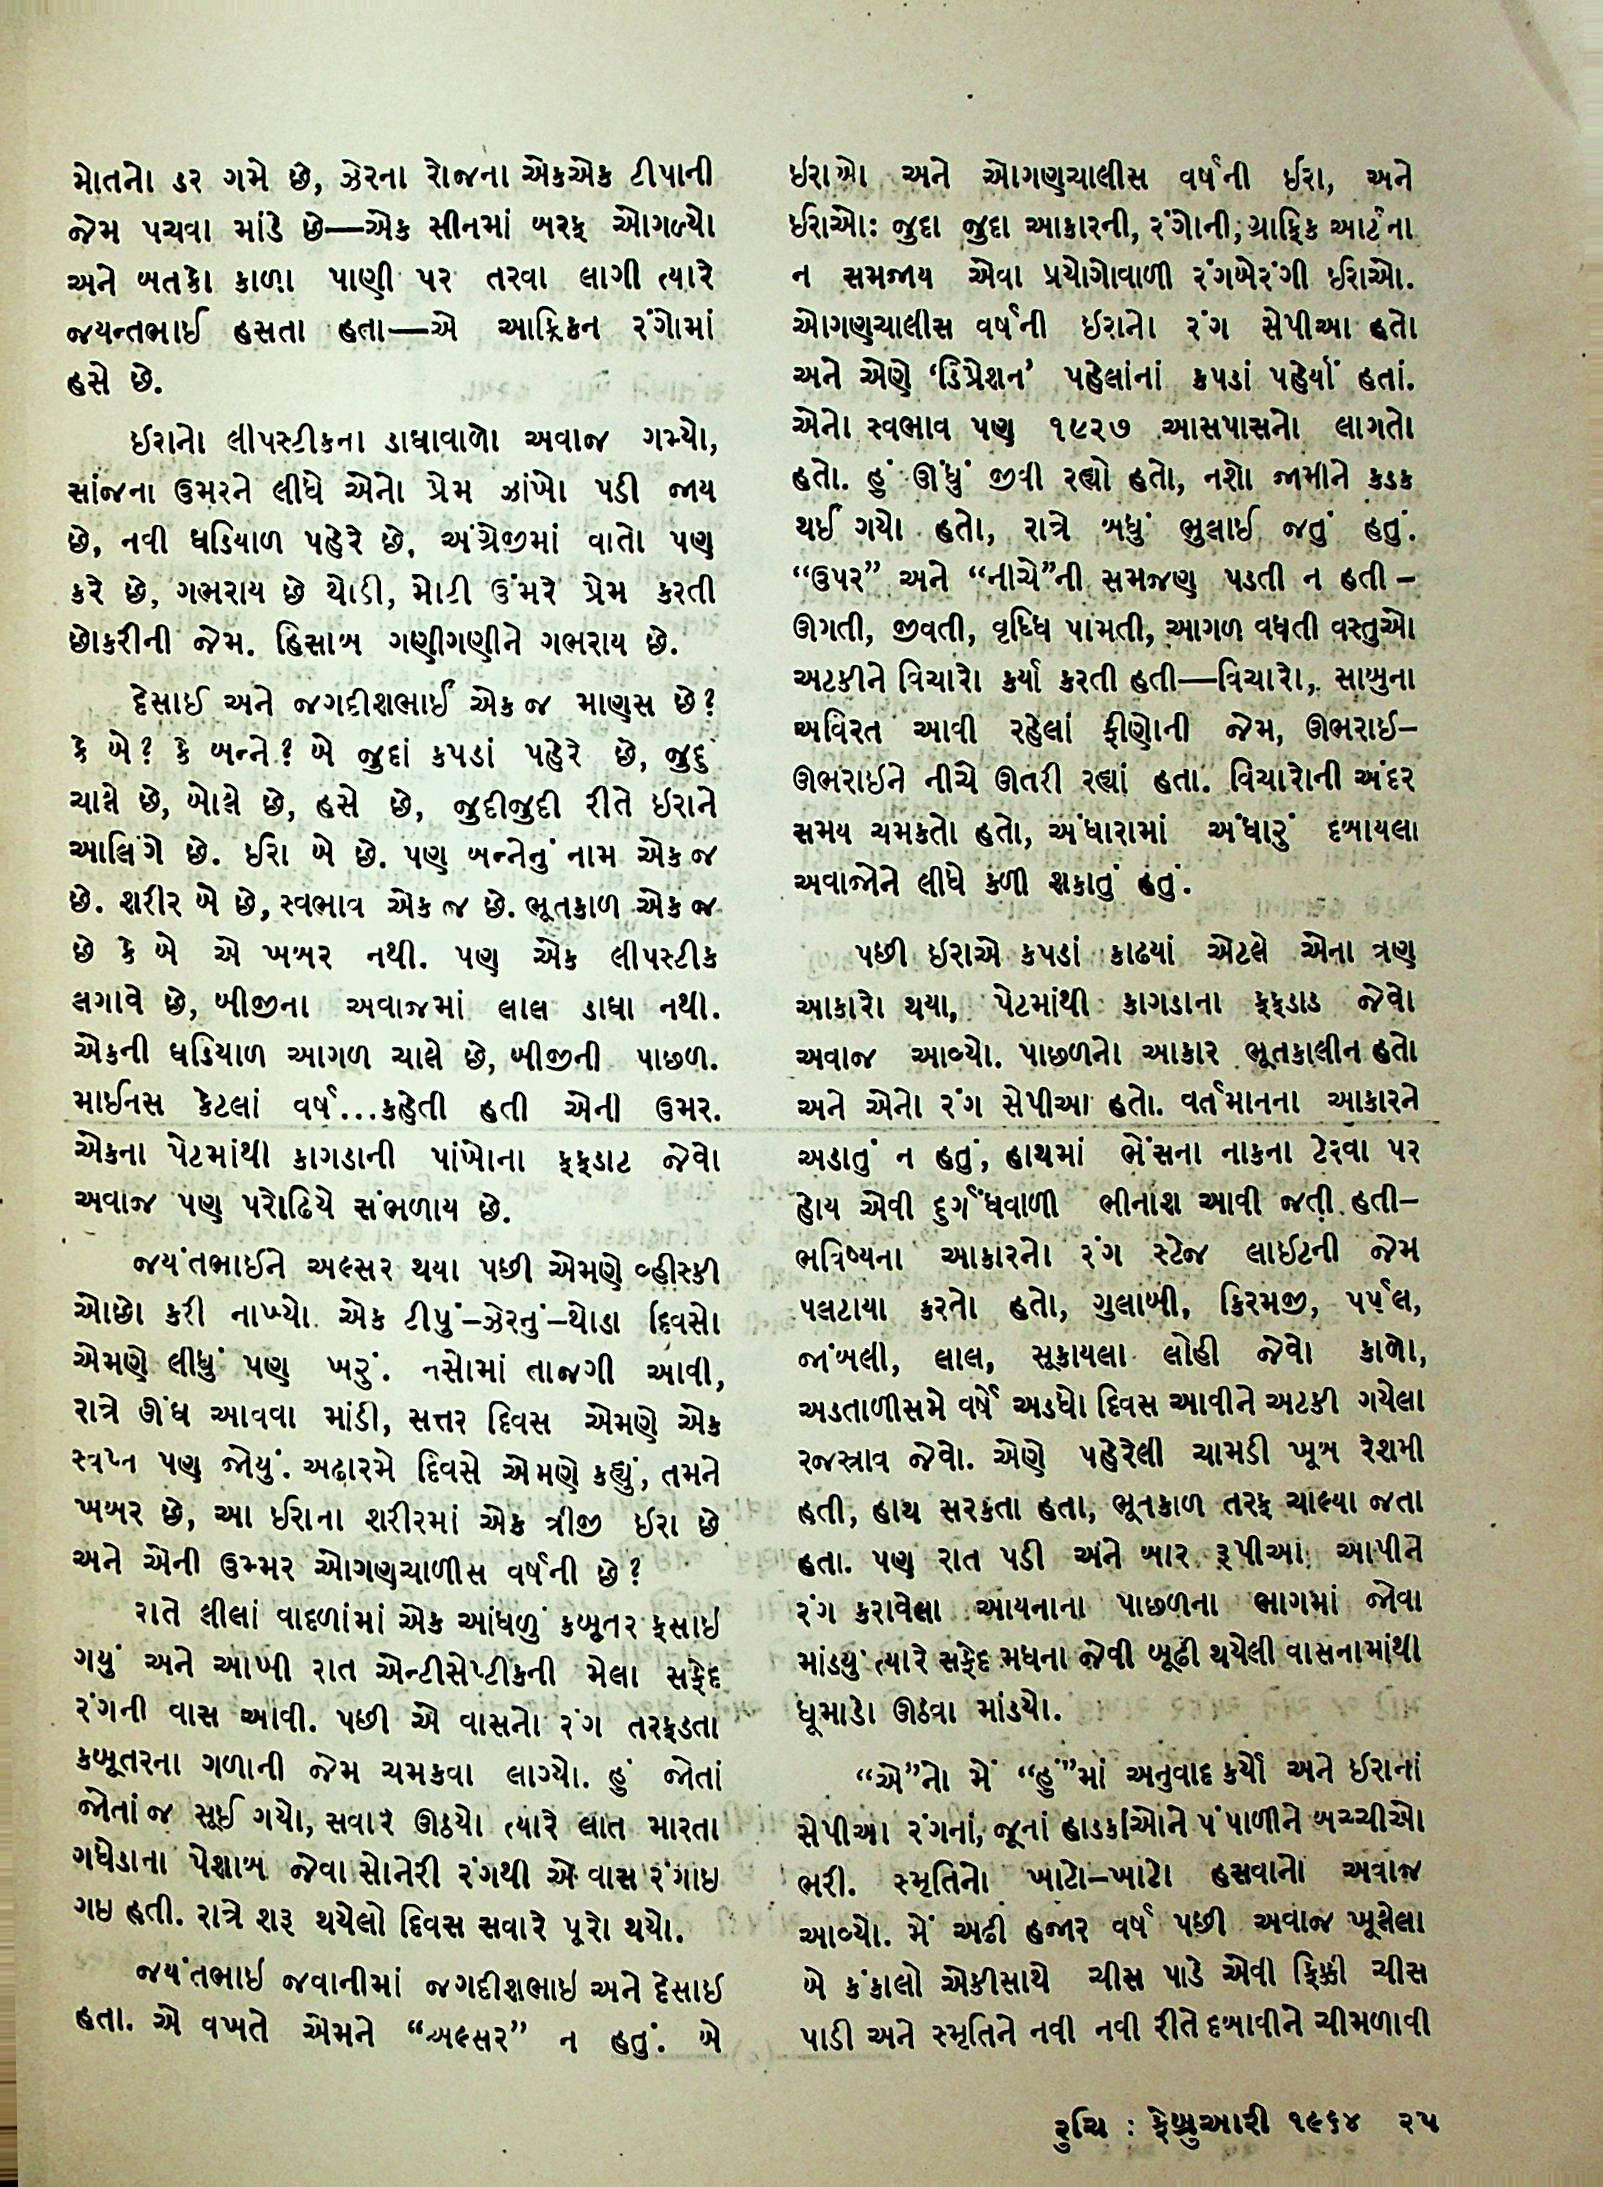 મોતનો ડર ગમે છે, ઝેરના રોજના એકએક ટીપાની
જેમ પચવા માંડે છે—એક સીનમાં બરફ ઓગળ્યો
અને બતકો કાળા પાણી પર તરવા લાગી ત્યારે
જયન્તભાઈ હસતા હતા—એ આફ્રિકન રંગોમાં
હસે છે.
ઈરાનો લીપસ્ટીકના ડાઘાવાળો અવાજ ગમ્યો,
સાંજના ઉમરને લીધે એનો પ્રેમ ઝાંખો પડી જાય
છે, નવી ઘડિયાળ પહેરે છે, અંગ્રેજીમાં વાતો પણ
કરે છે, ગભરાય છે થોડી, મોટી ઉંમરે પ્રેમ કરતી
છોકરીની જેમ. હિસાબ ગણીગણીને ગભરાય છે.
દેસાઈ અને જગદીશભાઈ એક જ માણસ છે?
કે બે? કે બન્ને? બે જુદાં કપડાં પહેરે છે, જુદુ
ચાલે છે, બોલે છે, હસે છે, જુદીજુદી રીતે ઇરાને
આલિંગે છે. ઈરા બે છે. પણ બન્નેનું નામ એક જ
છે. શરીર બે છે, સ્વભાવ એક જ છે. ભૂતકાળ એક જ
છે કે બે એ ખબર નથી. પણ એક લીપસ્ટીક
લગાવે છે, બીજીના અવાજમાં લાલ ડાઘા નથી.
એકની ઘડિયાળ આગળ ચાલે છે, બીજીની પાછળ.
માઈનસ કેટલાં વર્ષ...કહેતી હતી એની ઉમર.
એકના પેટમાંથી કાગડાની પાંખોના ફફડાટ જેવો
અવાજ પણ પરોઢિયે સંભળાય છે.
જયંતભાઈને અલ્સર થયા પછી એમણે વ્હીસ્કી
ઓછો કરી નાખ્યો. એક ટીપું–ઝેરનું–થોડા દિવસો
એમણે લીધું પણ ખરું. નસોમાં તાજગી આવી,
રાત્રે ઊંઘ આવવા માંડી, સત્તર દિવસ એમણે એક
સ્વપ્ન પણ જોયું. અઢારમે દિવસે એમણે કહ્યું, તમને
ખબર છે, આ ઈરાના શરીરમાં એક ત્રીજી ઈરા છે
અને એની ઉમ્મર ઓગણચાળીસ વર્ષની છે?
રાતે લીલાં વાદળાંમાં એક આંધળું કબૂતર ફસાઇ
ગયું અને આખી રાત એન્ટીસેપ્ટીકની મેલા સફેદ
રંગની વાસ આવી. પછી એ વાસનો રંગ તરફડતા
કબૂતરના ગળાની જેમ ચમકવા લાગ્યો. હું જોતાં
જોતાં જ સૂઈ ગયો, સવારે ઊઠયો ત્યારે લાત મારતા
ગધેડાના પેશાબ જેવા સોનેરી રંગથી એ વાસ રંગાઇ
ગઇ હતી. રાત્રે શરૂ થયેલો દિવસ સવારે પૂરો થયો.
જયંતભાઇ જવાનીમાં જગદીશભાઇ અને દેસાઈ
હતા. એ વખતે એમને “અલ્સર” ન હતું. બે
ઇરાઓ અને ઓગણચાલીસ વર્ષની ઈરા, અને
ઈરાઓઃ જુદા જુદા આકારની, રંગોની, ગ્રાફિક આર્ટના
ન સમજાય એવા પ્રયોગોવાળી રંગબેરંગી ઈરાઓ.
ઓગણચાલીસ વર્ષની ઈરાનો રંગ સેપીઆ હતો
અને એણે ‘ડિપ્રેશન’ પહેલાંનાં કપડાં પહેર્યાં હતાં.
એનો સ્વભાવ પણ ૧૯૨૭ આસપાસનો લાગતો
હતો. હું ઊંધું જીવી રહ્યો હતો, નશો જામીને કડક
થઈ ગયો હતો, રાત્રે બધું ભુલાઈ જતું હતું.
“ઉપર” અને “નીચે”ની સમજણ પડતી ન હતી –
ઊગતી, જીવતી, વૃધ્ધિ પામતી, આગળ વધતી વસ્તુઓ
અટકીને વિચારો કર્યા કરતી હતી—વિચારો, સાબુના
અવિરત આવી રહેલાં ફીણોની જેમ, ઊભરાઈ–
ઊભરાઇને નીચે ઊતરી રહ્યાં હતા. વિચારોની અંદર
સમય ચમકતો હતો, અંધારામાં અંધારું દબાયલા
અવાજોને લીધે કળી શકાતું હતું.
પછી ઈરાએ કપડાં કાઢયાં એટલે એના ત્રણ
આકારો થયા, પેટમાંથી કાગડાના ફફડાડ જેવો
અવાજ આવ્યો. પાછળનો આકાર ભૂતકાલીન હતો
અને એનો રંગ સેપીઆ હતો. વર્તમાનના આકારને
અડાતું ન હતું, હાથમાં ભેંસના નાકના ટેરવા પર
હોય એવી દુર્ગંધવાળી ભીનાશ આવી જતી હતી–
ભવિષ્યના આકારનો રંગ સ્ટેજ લાઈટની જેમ
પલટાયા કરતો હતો, ગુલાબી, કિરમજી, પર્પલ,
જાંબલી, લાલ, સૂકાયલા લોહી જેવો કાળો,
અડતાળીસમે વર્ષે અડધો દિવસ આવીને અટકી ગયેલા
રજસ્ત્રાવ જેવો. એણે પહેરેલી ચામડી ખૂબ રેશમી
હતી, હાથ સરકતા હતા, ભૂતકાળ તરફ ચાલ્યા જતા
હતા. પણ રાત પડી અને બાર રૂપીઆ આપીને
રંગ કરાવેલા આયનાના પાછળના ભાગમાં જોવા
માંડયું ત્યારે સફેદ મધના જેવી બૂઢી થયેલી વાસનામાંથી
ધૂમાડો ઊઠવા માંડયો.
“એ”નો મેં “હું”માં અનુવાદ કર્યો અને ઈરાનાં
સેપીઆ રંગનાં, જૂનાં હાડકાંઓને પંપાળીને બચ્ચીઓ
ભરી. સ્મૃતિનો ખાટો–ખાટો હસવાનો અવાજ
આવ્યો. મેં અઢી હજાર વર્ષ પછી અવાજ ખૂલેલા
બે કંકાલો એકીસાથે ચીસ પાડે એવી ફિક્કી ચીસ
પાડી અને સ્મૃતિને નવી નવી રીતે દબાવીને ચીમળાવી
રુચિ : ફેબ્રુઆરી ૧૯૬૪ ૨૫